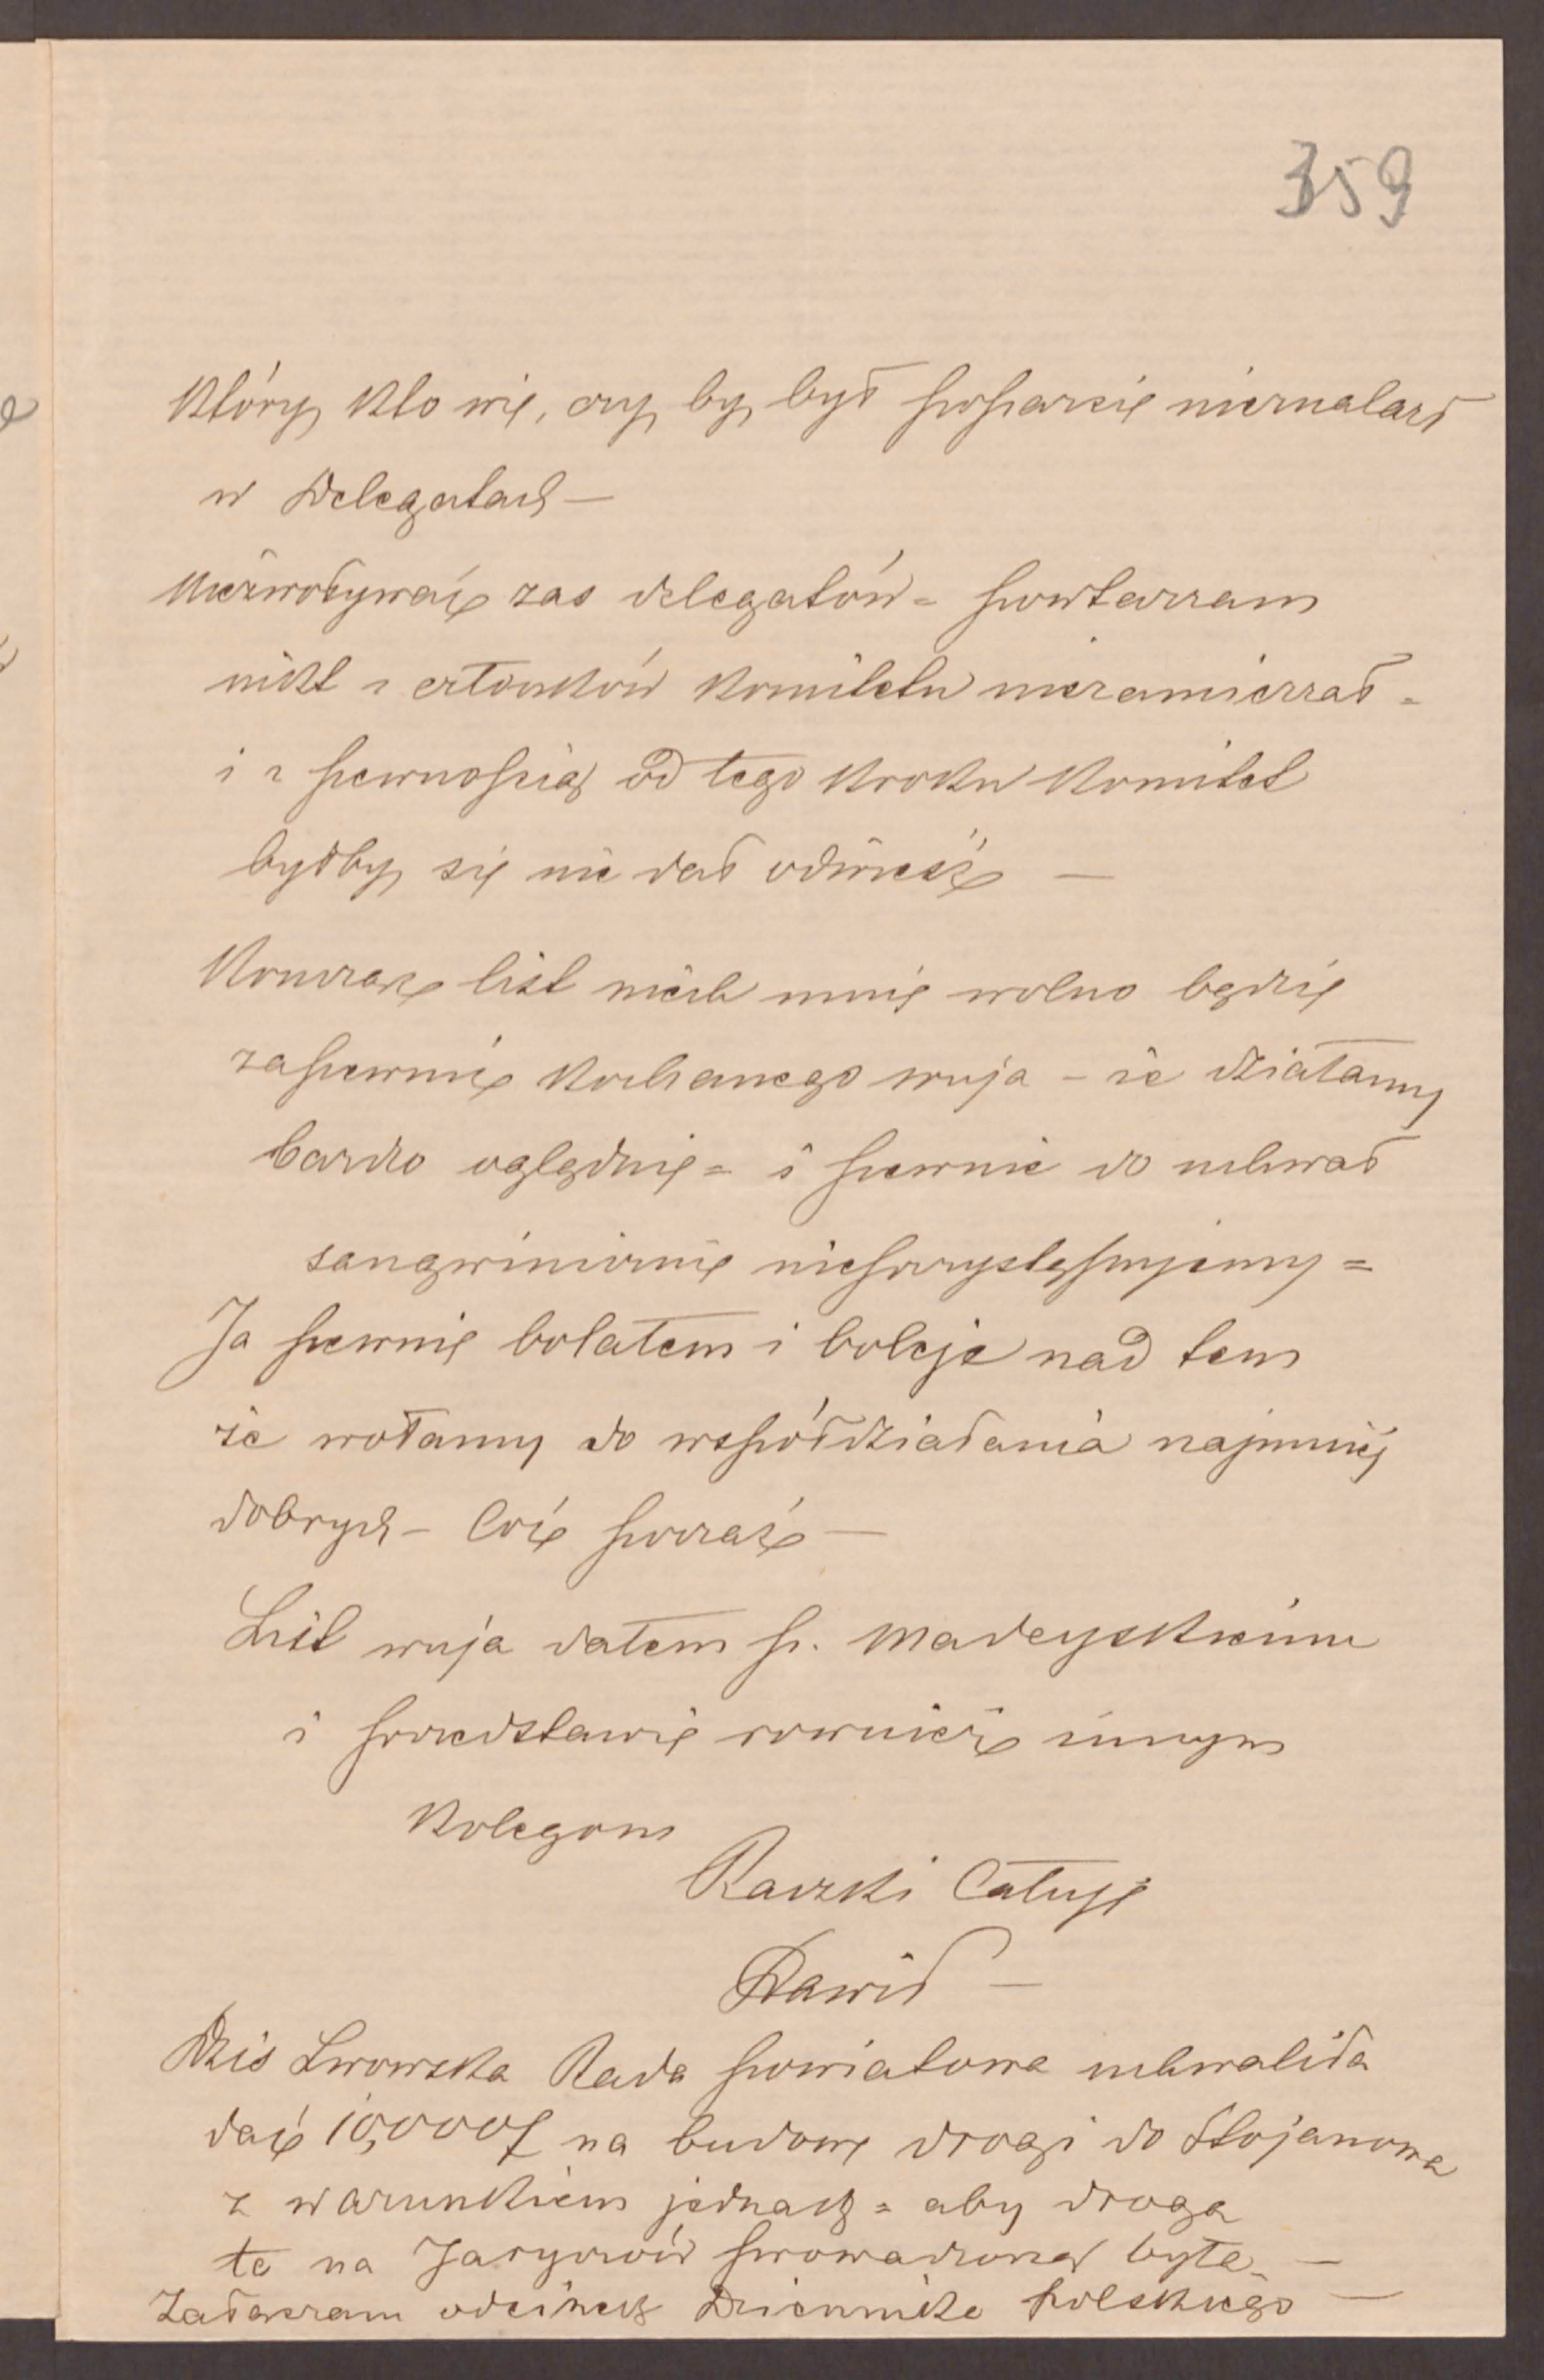 359
który kto wie, czy by był poparcie nieznalazł
w Delegatach —
Niezwoływać zas delegatów = powtarzam
nikt z członków Komitetu niezamierzał =
i z pewnością od tego kroku Komitet
byłby się nie dał odwieść —
Konczac list niech mnie wolno będzie
zapewnić kochanego wuja – że działamy
bardzo oględnie = i pewnie do uchwał
sangwinicznie nieprzystępujemy =
Ja pewnie bolałem i boleję nad tem
że wołamy do współdziałania najmniej
dobrych – Coż począć —
List wuja dałem p. Madeyskiemu
i przedstawię rownież innym
Kolegom
Raczki Całuję
Dawid —
Dzis Lwowska Rada powiatowa uchwaliła
dać 10,000 f na budowę drogi do Stojanowa
z warunkiem jednak = aby droga
ta na Jaryczów prowadzona była —
Załączam odcinek Dziennika Polskiego —